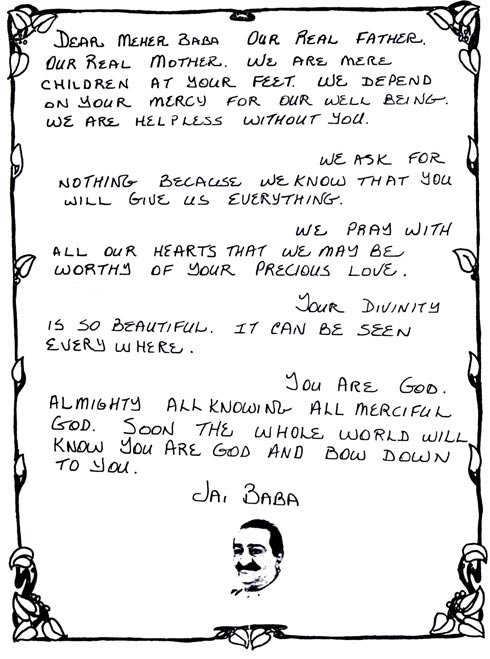 DEAR MEHER BABA OUR REAL FATHER.
OUR REAL MOTHER. WE ARE MERE
CHILDREN AT YOUR FEET. WE DEPEND
ON YOUR MERCY FOR OUR WELL BEING.
WE ARE HELPLESS WITHOUT YOU.
WE ASK FOR
NOTHING BECAUSE WE KNOW THAT YOU
WILL GIVE US EVERYTHING.
WE PRAY WITH
ALL OUR HEARTS THAT WE MAY BE
WORTHY OF YOUR PRECIOUS LOVE.
YOUR DIVINITY
IS SO BEAUTIFUL. IT CAN BE SEEN
EVERY WHERE.
YOU ARE GOD.
ALMIGHTY ALL KNOWING ALL MERCIFUL
GOD. SOON THE WHOLE WORLD WILL
KNOW YOU ARE GOD AND BOW DOWN
TO YOU.
JAI BABA